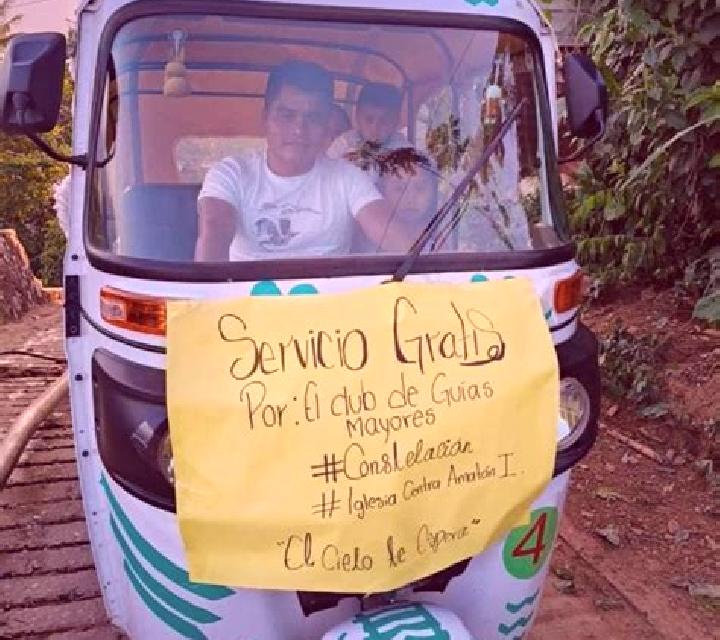 Servicio Gratis
Por: El club de Guias
Mayores
#Constelación
#Iglesia Contra Amatán I.
"El Cielo te Espera"
4